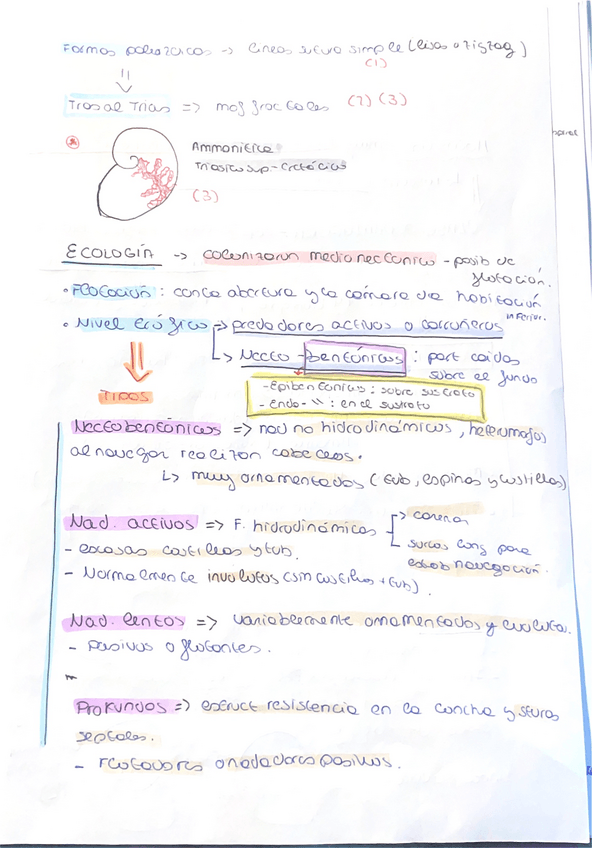 Formas paleozoicas -> Líneas sutura simple (lisas o zigzag)
(1)
Tras al Trias => mof fractales (2) (3)
Ammonitica
Triásico sup-Cretácico
(3)
ECOLOGÍA -> colonizaron medio nectonico - posib de
flotación.
• FLOTACIÓN : con la abertura y la cámara de habitación
inferior.
• Nivel trófico => predadores activos o carroñeros
-> Necto-bentónicos : part caídas
sobre el fondo
- Epibentónicos : sobre sustrato
- Endo- " : en el sustrato
TIPOS
Nectobentónicos => nad no hidrodinámicos, heteromorfos
al navegar realizan cabeceos.
↳ muy ornamentados (tub, espinas y costillas)
Nad. activos => F. hidrodinámicas -> carenas
surcos long para
estab navegación.
- escasas costillas y tub.
- Normalmente involutos (sin costillas + tub).
Nad. lentos => variablemente ornamentados y evolutas.
- Pasivos o flotantes.
Profundos => estruct resistencia en la concha y suturas
septales.
- Flotadores o nadadores pasivos.